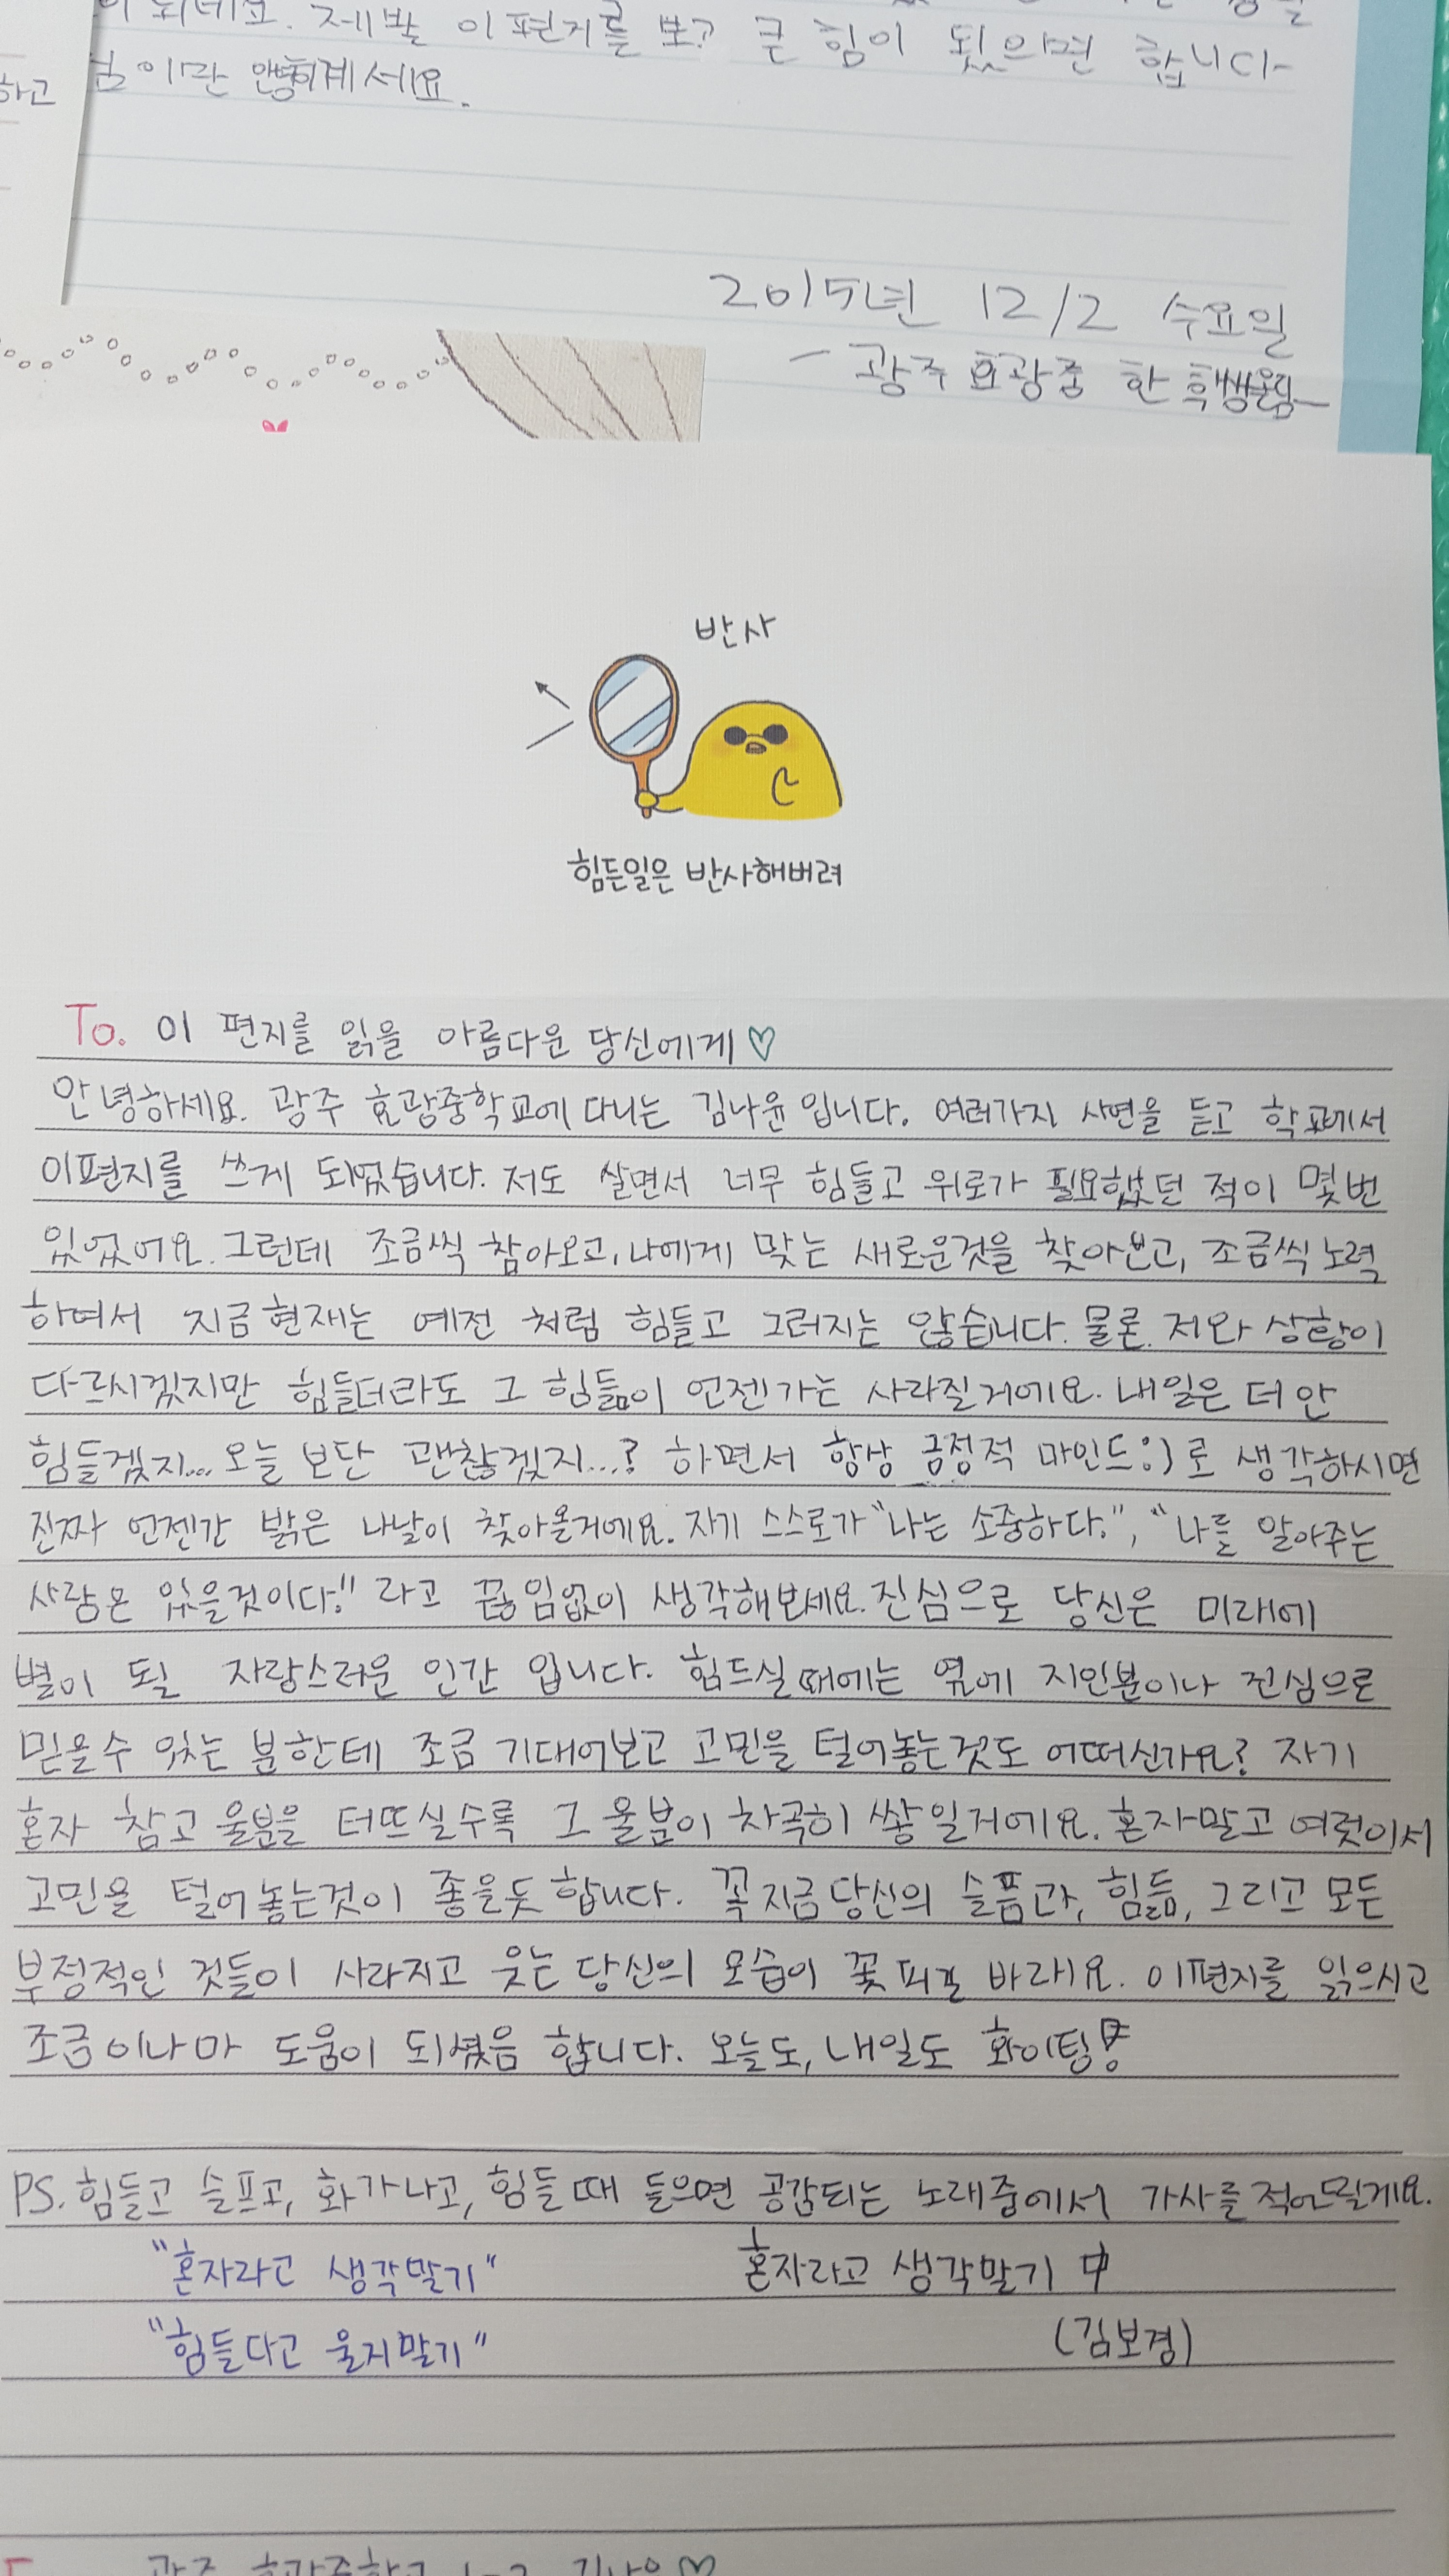 이 되네요. 제발 이 편지를 보고 큰 힘이 됬으면 합니다
이만 안녕히계세요.
하고
2015년 12/2 수요일
- 광주 효광중 한 학생올림-
반사
힘든일은 반사해버려
To. 이 편지를 읽을 아름다운 당신에게♡
안녕하세요. 광주 효광중학교에 다니는 김나윤입니다. 여러가지 사연을 듣고 학교에서
이편지를 쓰게 되었습니다. 저도 살면서 너무 힘들고 위로가 필요했던 적이 몇번
있었어요. 그런데 조금씩 참아오고, 나에게 맞는 새로운것을 찾아보고, 조금씩 노력
하여서 지금현재는 예전 처럼 힘들고 그러지는 않습니다. 물론 저와 상황이
다르시겠지만 힘들더라도 그 힘듦이 언젠가는 사라질거에요. 내일은 더 안
힘들겠지... 오늘 보단 괜찮겠지...? 하면서 항상 긍정적 마인드:)로 생각하시면
진짜 언젠간 밝은 나날이 찾아올거에요. 자기 스스로가 "나는 소중하다.", "나를 알아주는
사람은 있을것이다!" 라고 끊임없이 생각해보세요. 진심으로 당신은 미래에
별이 될 자랑스러운 인간 입니다. 힘드실때에는 옆에 지인분이나 진심으로
믿을수 있는 분한테 조금 기대어보고 고민을 털어놓는것도 어떠신가요? 자기
혼자 참고 울분을 터뜨실수록 그 울분이 차곡히 쌓일거에요. 혼자말고 여럿이서
고민을 털어놓는것이 좋을듯 합니다. 꼭 지금 당신의 슬픔과, 힘듦, 그리고 모든
부정적인 것들이 사라지고 웃는 당신의 모습이 꽃 피길 바래요. 이편지를 읽으시고
조금이나마 도움이 되셨음 합니다. 오늘도, 내일도 화이팅!
PS. 힘들고 슬프고, 화가나고, 힘들때 들으면 공감되는 노래중에서 가사를 적어드릴게요.
"혼자라고 생각말기" 혼자라고 생각말기 中
"힘들다고 울지말기" (김보경)
광주 효광중학교 1-2 김나윤♡